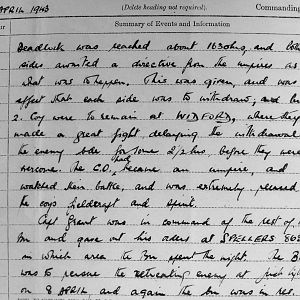 APRIL 1943
(Delete heading not required).
Commanding
our
Summary of Events and Information
Deadlock was reached about 1630hrs, and both
sides awaited a directive from the umpires as
what was to happen. This was given, and was
effect that each side was to withdraw, and
2. Coy were to remain at WIDFORD, where they
made a great fight, delaying the withdrawal
the enemy bde for some 2/2 hrs before they were
overcome. The C.O., had become an umpire, and
watched their battle, and was extremely pleased
the coys fieldcraft and spirit.
Capt Grant was in command of the rest of
Bn and gave out his orders at SPELLERS
in which area the Bn spent the night. The B
was to pursue the retreating enemy at first light
on 8 APRIL and again the bn was in res.